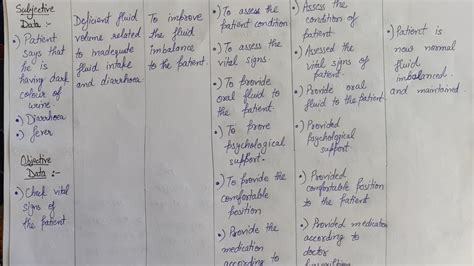 Subjective
Data :-
•) Patient
says that
he is
having dark
colour of
urine.
•) Diarrhoea
•) fever
Objective
Data :-
•) Check vital
signs of
the patient
Deficient fluid
volume related
to inadequate
fluid intake
and diarrhoea
To improve
the fluid
imbalance
to the patient.
•) To assess the
patient condition
•) To assess the
vital signs.
•) To provide
oral fluid to
the patient
•) To prove
psychological
support.
•) To provide the
comfortable
position
•) Provide the
medication
according to
Assess the
condition of
patient
•) Assessed the
vital signs of
patient.
•) Provide oral
fluid to the patient
•) Provided
psychological
support
•) Provided
comfortable position
to the patient
•) Provided medication
according to
doctor
•) Patient is
now normal
fluid
imbalanced
and maintained.